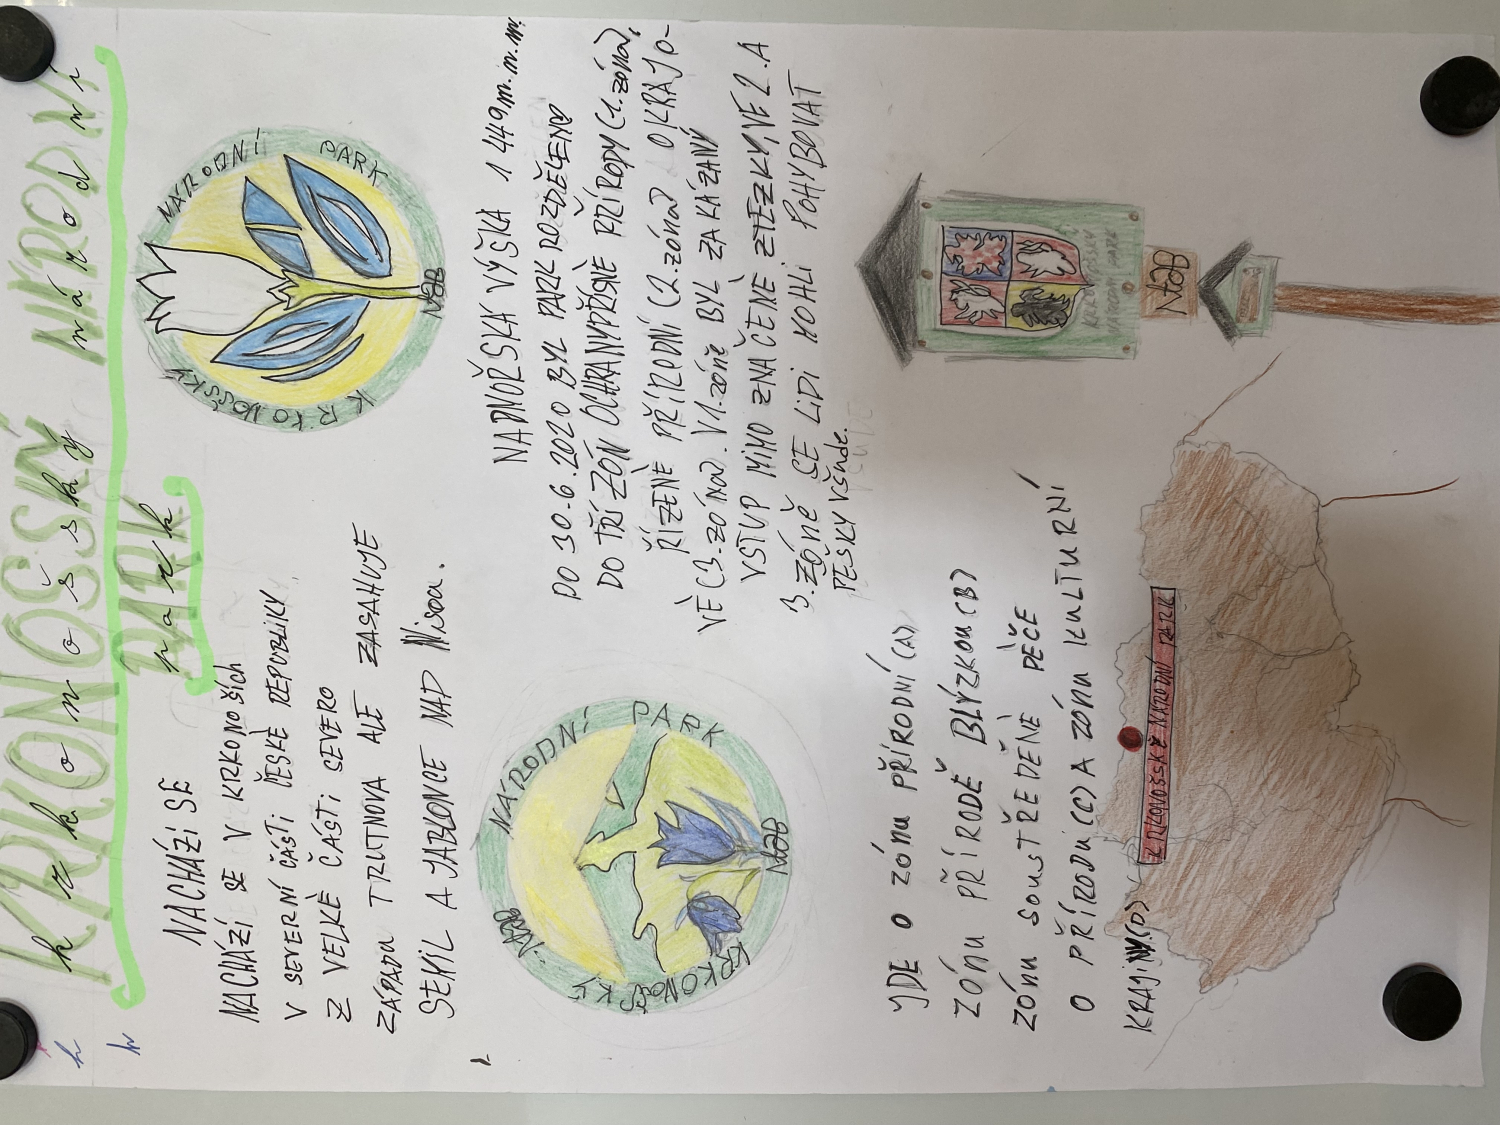 KRKONOŠSKÝ NÁRODNÍ
krkonošský národní
PARK
park
NACHÁZÍ SE
NACHÁZÍ SE V KRKONOŠÍCH
V SEVERNÍ ČÁSTI ČESKÉ REPUBLIKY
Z VELKÉ ČÁSTI SEVERO
ZÁPADU TRUTNOVA ALE ZASAHUJE
SEMIL A JABLONCE NAD Nisou.
NÁRODNÍ PARK
KRKONOŠSKÝ
NADMOŘSKÁ VÝŠKA 1 449 m.n.m.
DO 30.6.2020 BYL PARK ROZDĚLENO
DO TŘÍ ZÓN OCHRANYPŘÍSNÉ PŘÍRODY(1.zóna),
ŘÍZENĚ PŘÍRODNÍ (2.zóna) OKRAJO-
VÉ (3.zóna). V1.zóně BYL ZAKÁZANÝ
VSTUP MIMO ZNAČENÉ STEZKYVE 2. A
3. ZÓNĚ SE LIDI MOHLI POHYBOVAT
PĚŠKY Všude.
NÁRODNÍ PARK
KRKONOŠSKÝ
JDE O ZÓNU PŘÍRODNÍ (A)
ZÓNU PŘÍRODĚ BLÝZKOU(B)
ZÓNU SOUSTŘEDĚNÉ PÉČE
O PŘÍRODU(C) A ZÓNU KULTURNÍ
KRAJINY.(D)
KRKONOŠSKÝ
NÁRODNÍ PARK
KRKONOŠSKÉ NÁRODNÍ PARK